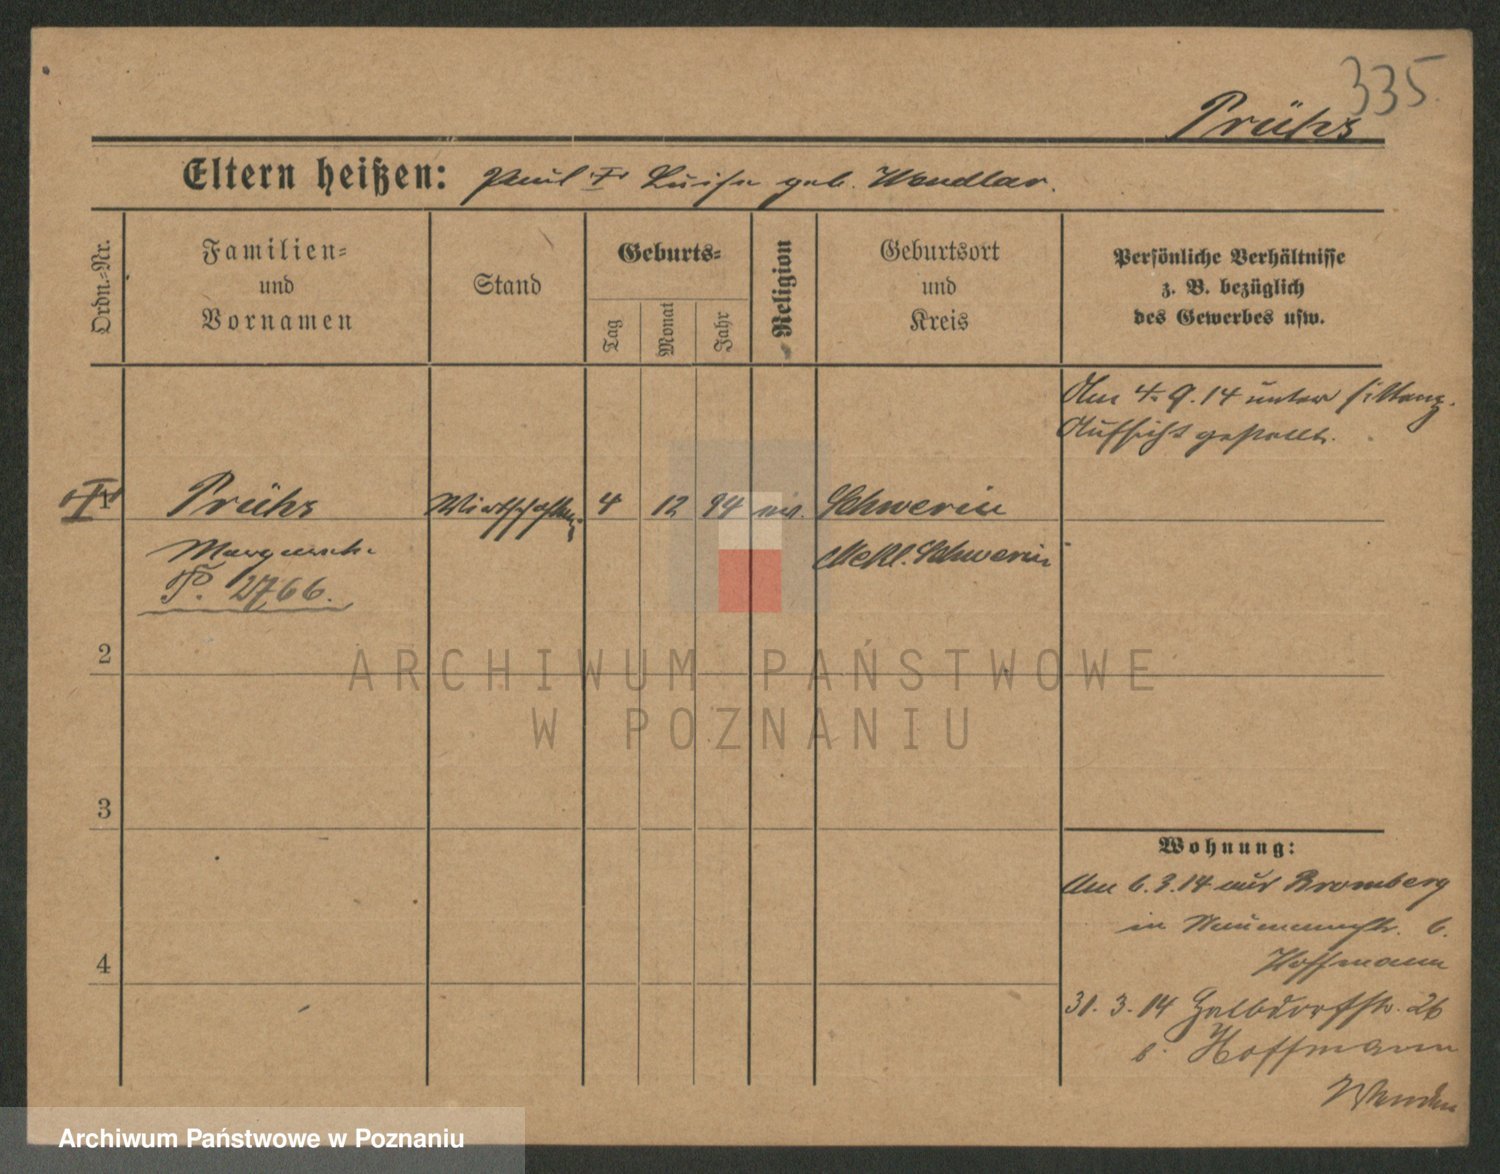 335.
Prühs
Eltern heißen: Paul u. Luise geb. Wendlar.
Ordn.-Nr.
Familien-
und
Vornamen
Stand
Geburts-
Tag
Monat
Jahr
Religion
Geburtsort
und
Kreis
Persönliche Verhältnisse
z. B. bezüglich
des Gewerbes usw.
Am 4. 9. 14 unter sittenp.
Aufsicht gestellt.
1 Prühs 4 12 94 ev. Schwerin
Margareth.
Mekl. Schwerin
P. 2766.
2
3
4
Wohnung:
Am 6. 3. 14 aus Bromberg
in Naumannstr. 6.
Hoffmann
31. 3. 14 Halbdorfstr. 26
b. Hoffmann
ARCHIWUM PAŃSTWOWE
W POZNANIU
Archiwum Państwowe w Poznaniu